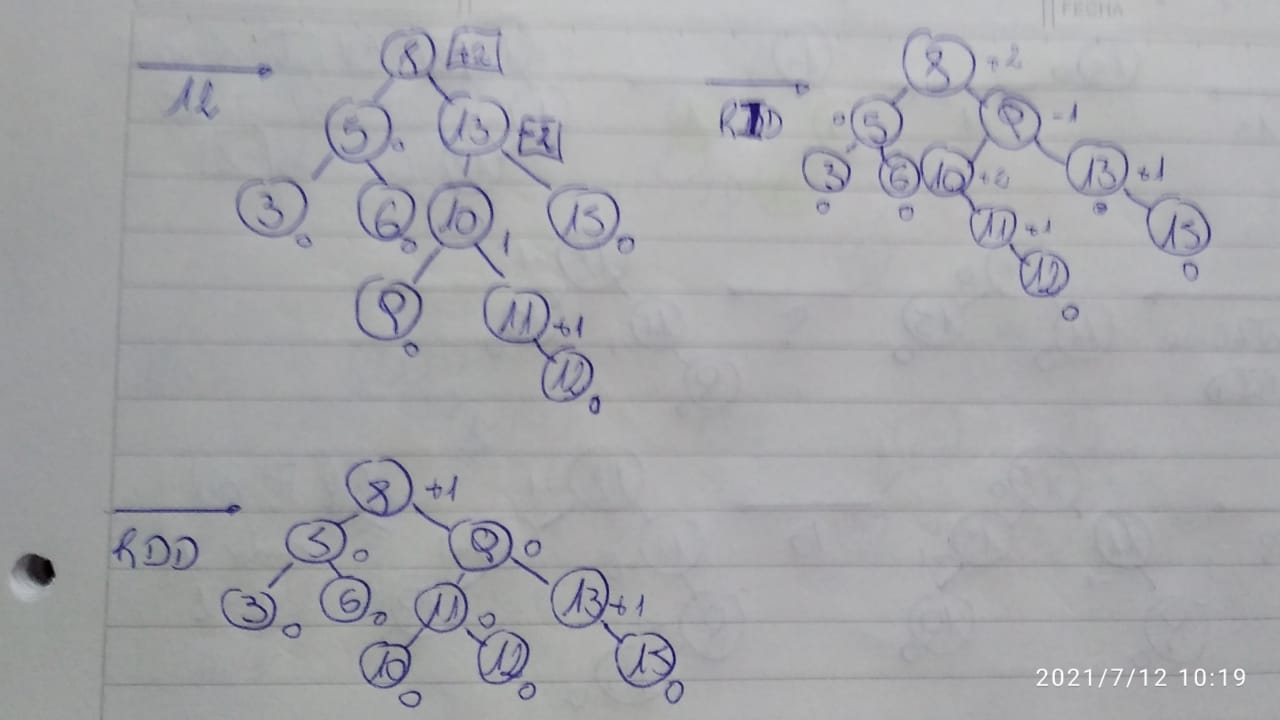 FECHA
12
8 +2
5 . 13 -2
3 0 6 0 10 1 15 0
9 0 11 +1
12 0
8 +2
0 5 9 -1
3 0 6 0 10 +2 13 +1
11 +1 15 0
12 0
RDD
8 +1
5 0 9 0
3 0 6 0 11 0 13 +1
10 0 12 0 15 0
2021/7/12 10:19